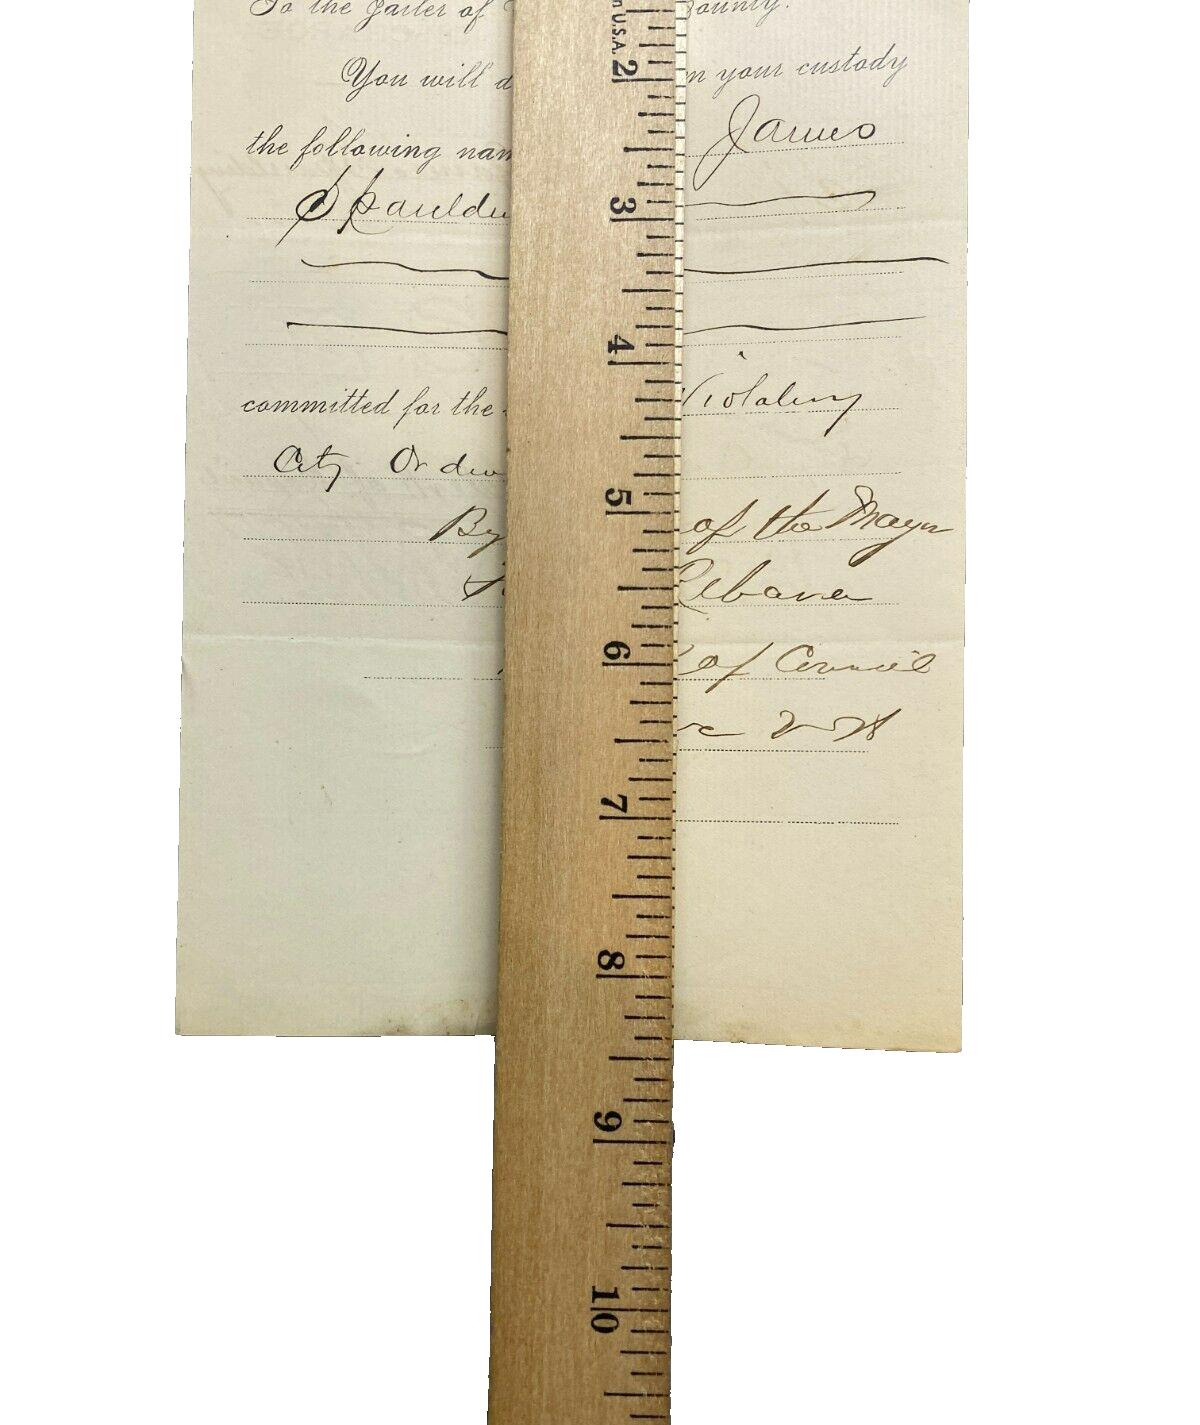 To the Jailer of County.
You will d m your custody
the following nam James
Spauldin
committed for the Violating
City Ordin
By of the Mayor
Urbana
of Council
m U.S.A. 2 3 4 5 6 7 8 9 10